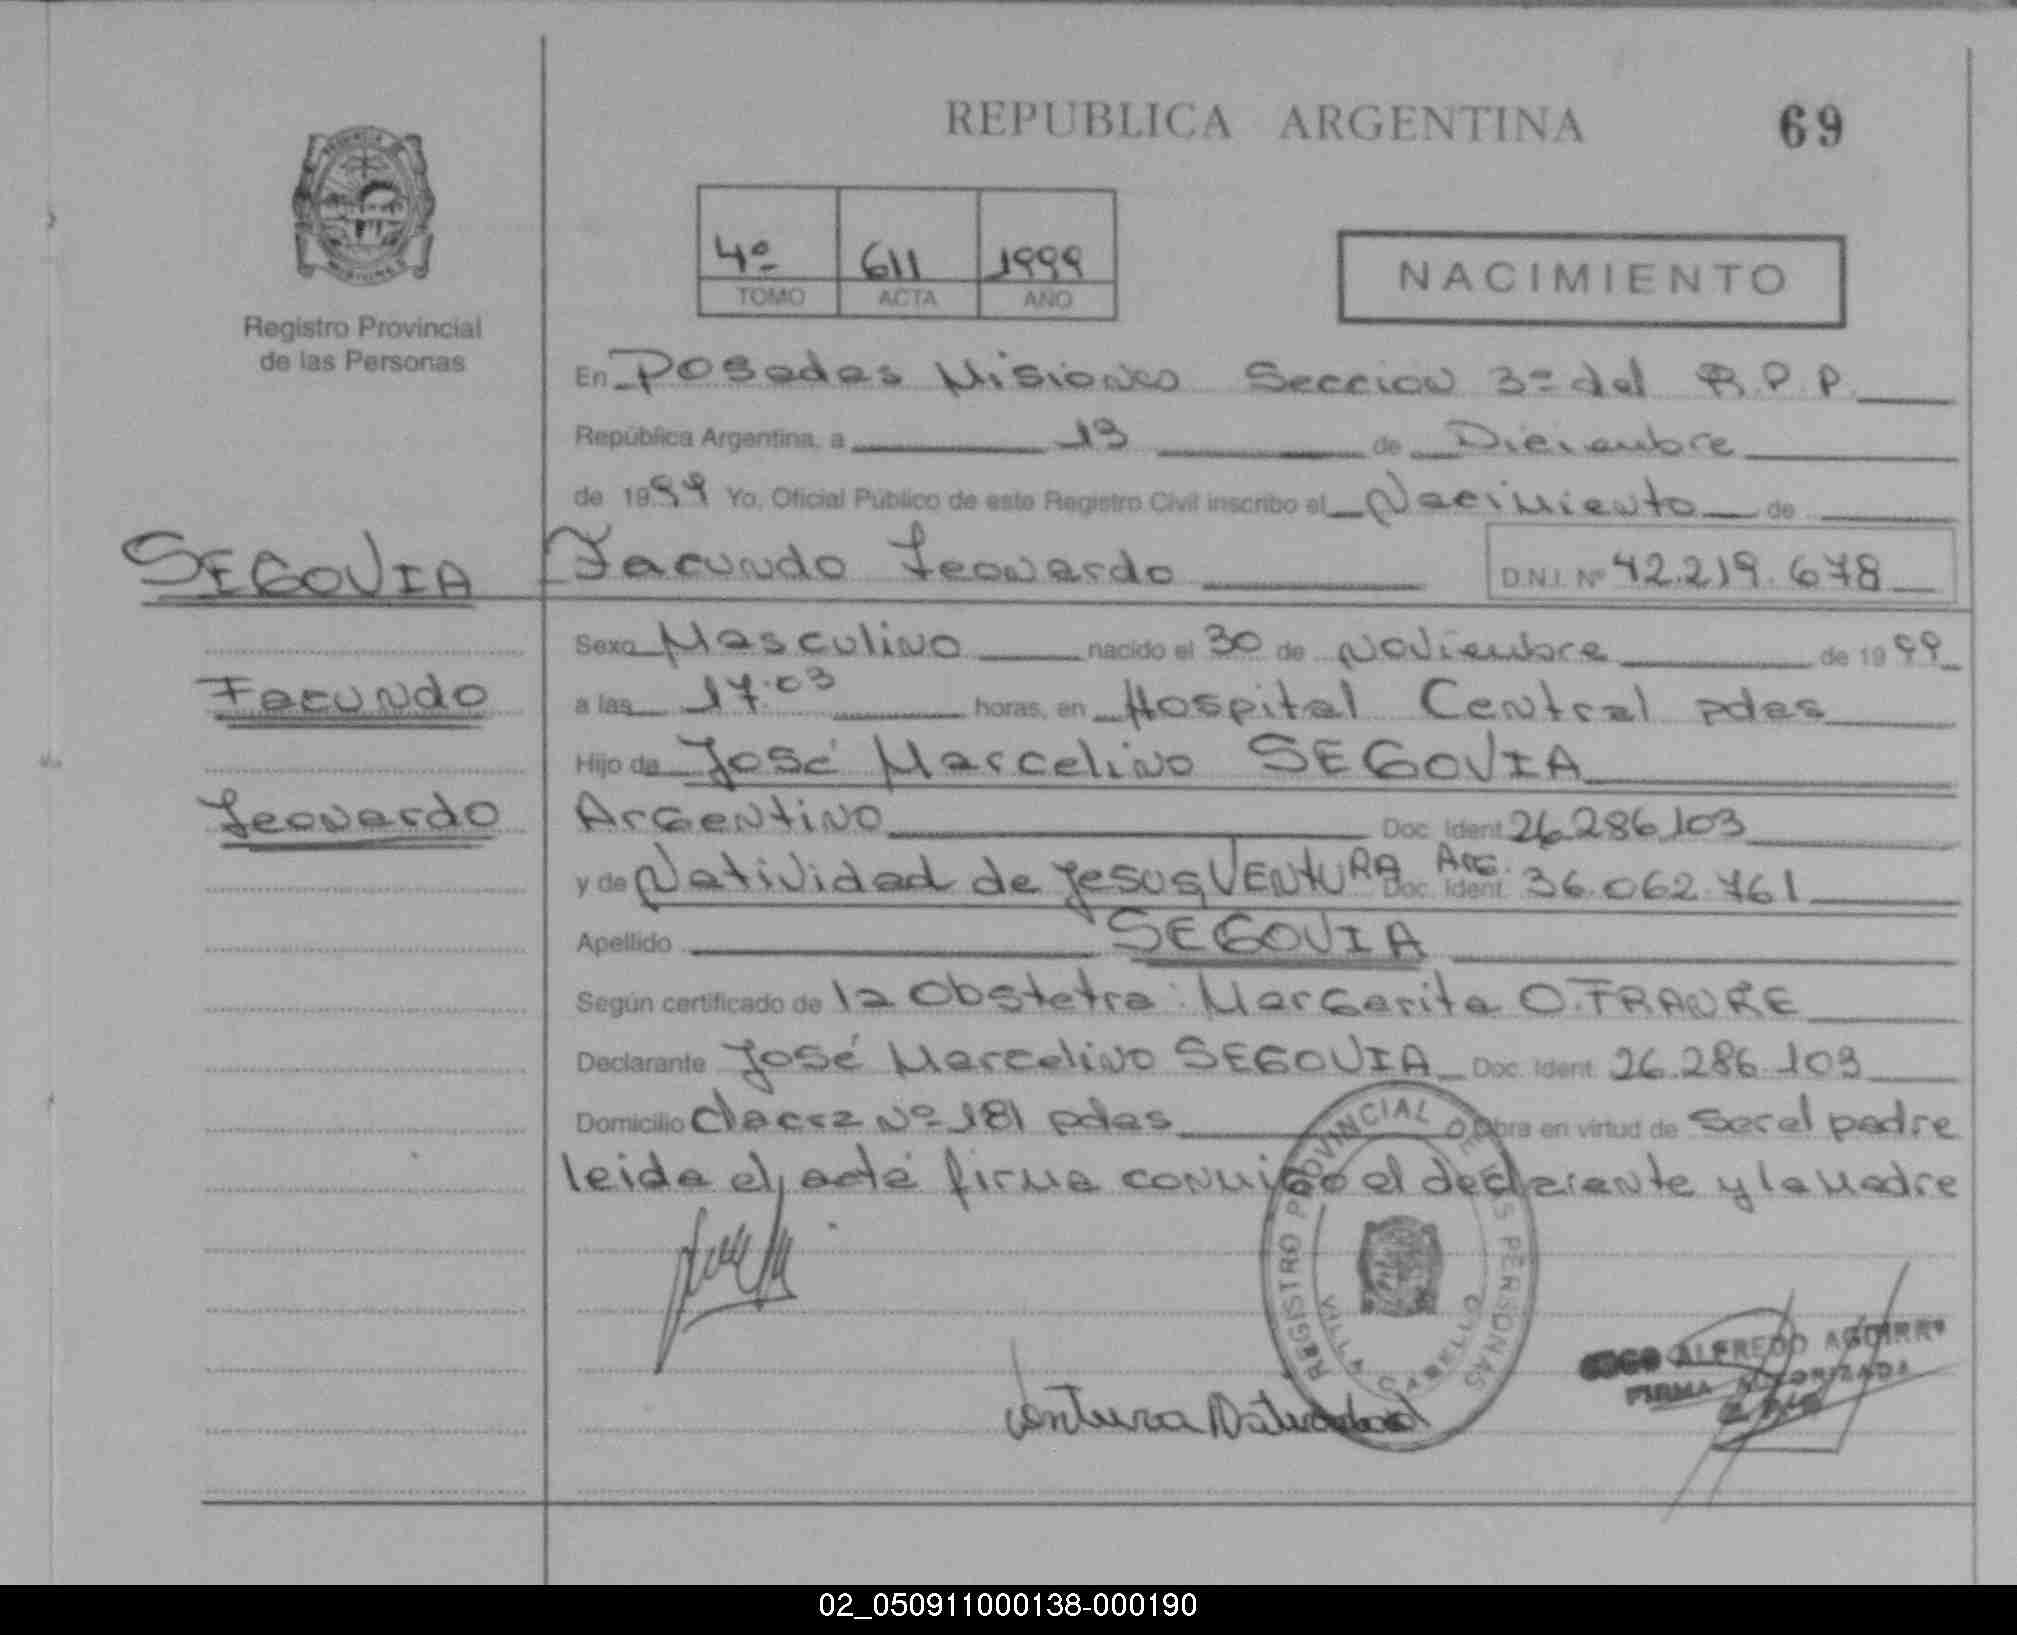 REPUBLICA ARGENTINA
69
4º 611 1999
TOMO ACTA AÑO
NACIMIENTO
Registro Provincial
de las Personas
En Posadas Misiones Seccion 3ª del R.P.P.
República Argentina, a 13 de Diciembre
de 1999 Yo, Oficial Público de este Registro Civil inscribo el Nacimiento de
SEGOVIA
Facundo Leonardo D.N.I. Nº 42.219.678
Sexo Masculino nacido el 30 de Noviembre de 1999
Facundo
a las 17.03 horas, en Hospital Central pdas
Hijo de José Marcelino SEGOVIA
Leonardo
Argentino Doc. Ident. 26.286.103
y de Natividad de Jesus VENTURA Arg. Doc. Ident. 36.062.761
Apellido SEGOVIA
Según certificado de la Obstetra: Margarita O.
Declarante José Marcelino SEGOVIA Doc. Ident. 26.286.103
Domicilio Nº 181 pdas Obra en virtud de ser el padre
leida el acta firma conmigo el declarante y la Madre
REGISTRO PROVINCIAL DE LAS PERSONAS
VILLA CABELLO
ALFREDO AGUIRRE
FIRMA AUTORIZADA
Ventura Natividad
02_050911000138-000190